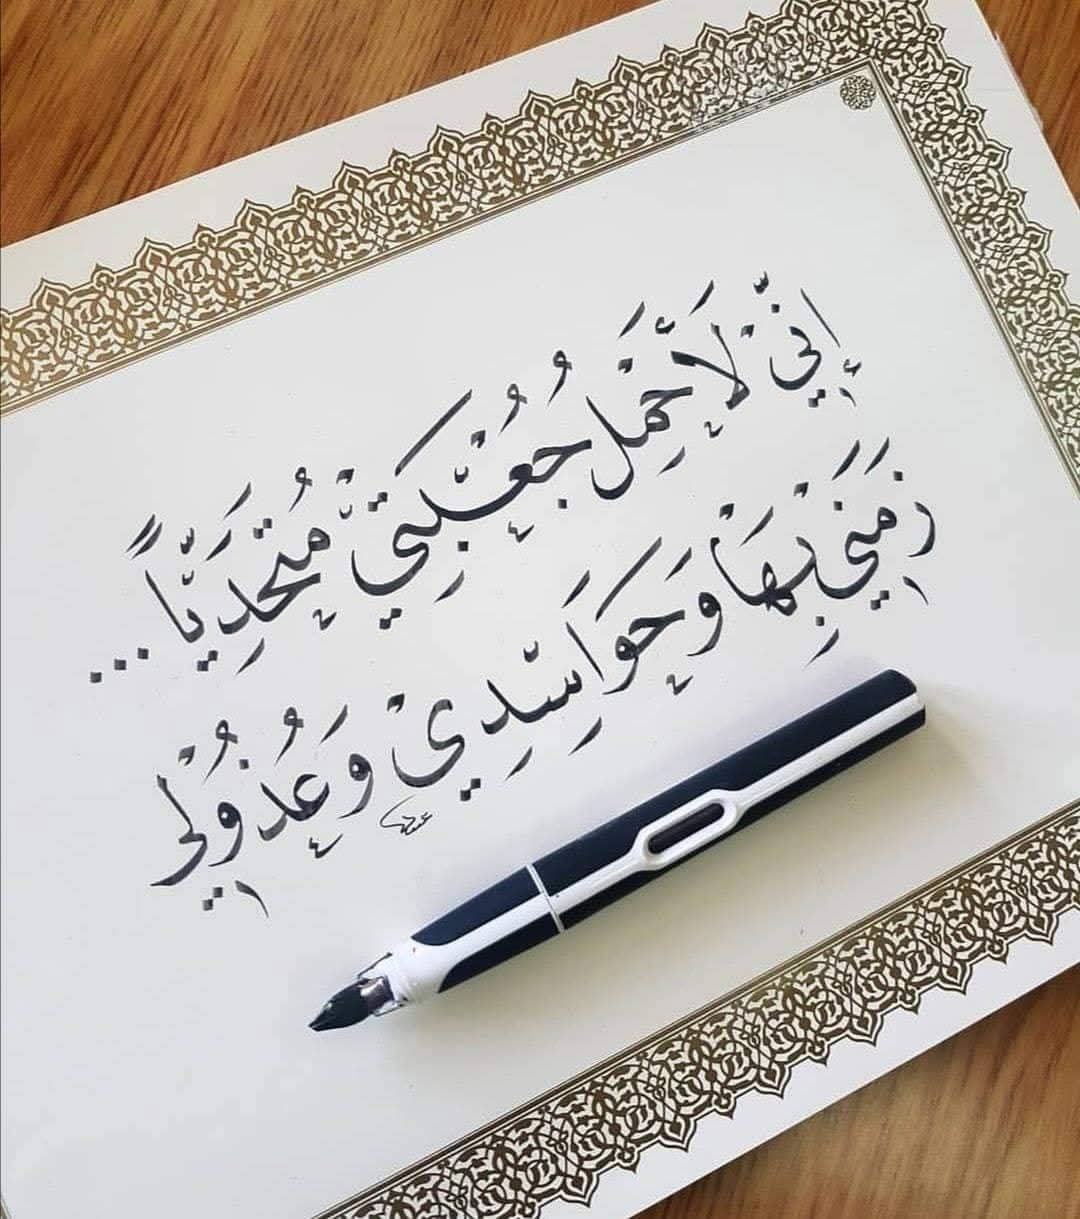 إِنِّيْ لَأَحْمِلُ جُعْبَتِيْ مُتَحَدِّيَاً ...
زَمَنِيْ بِهَا وَحَوَاسِدِيْ وَعُذُولِيْ